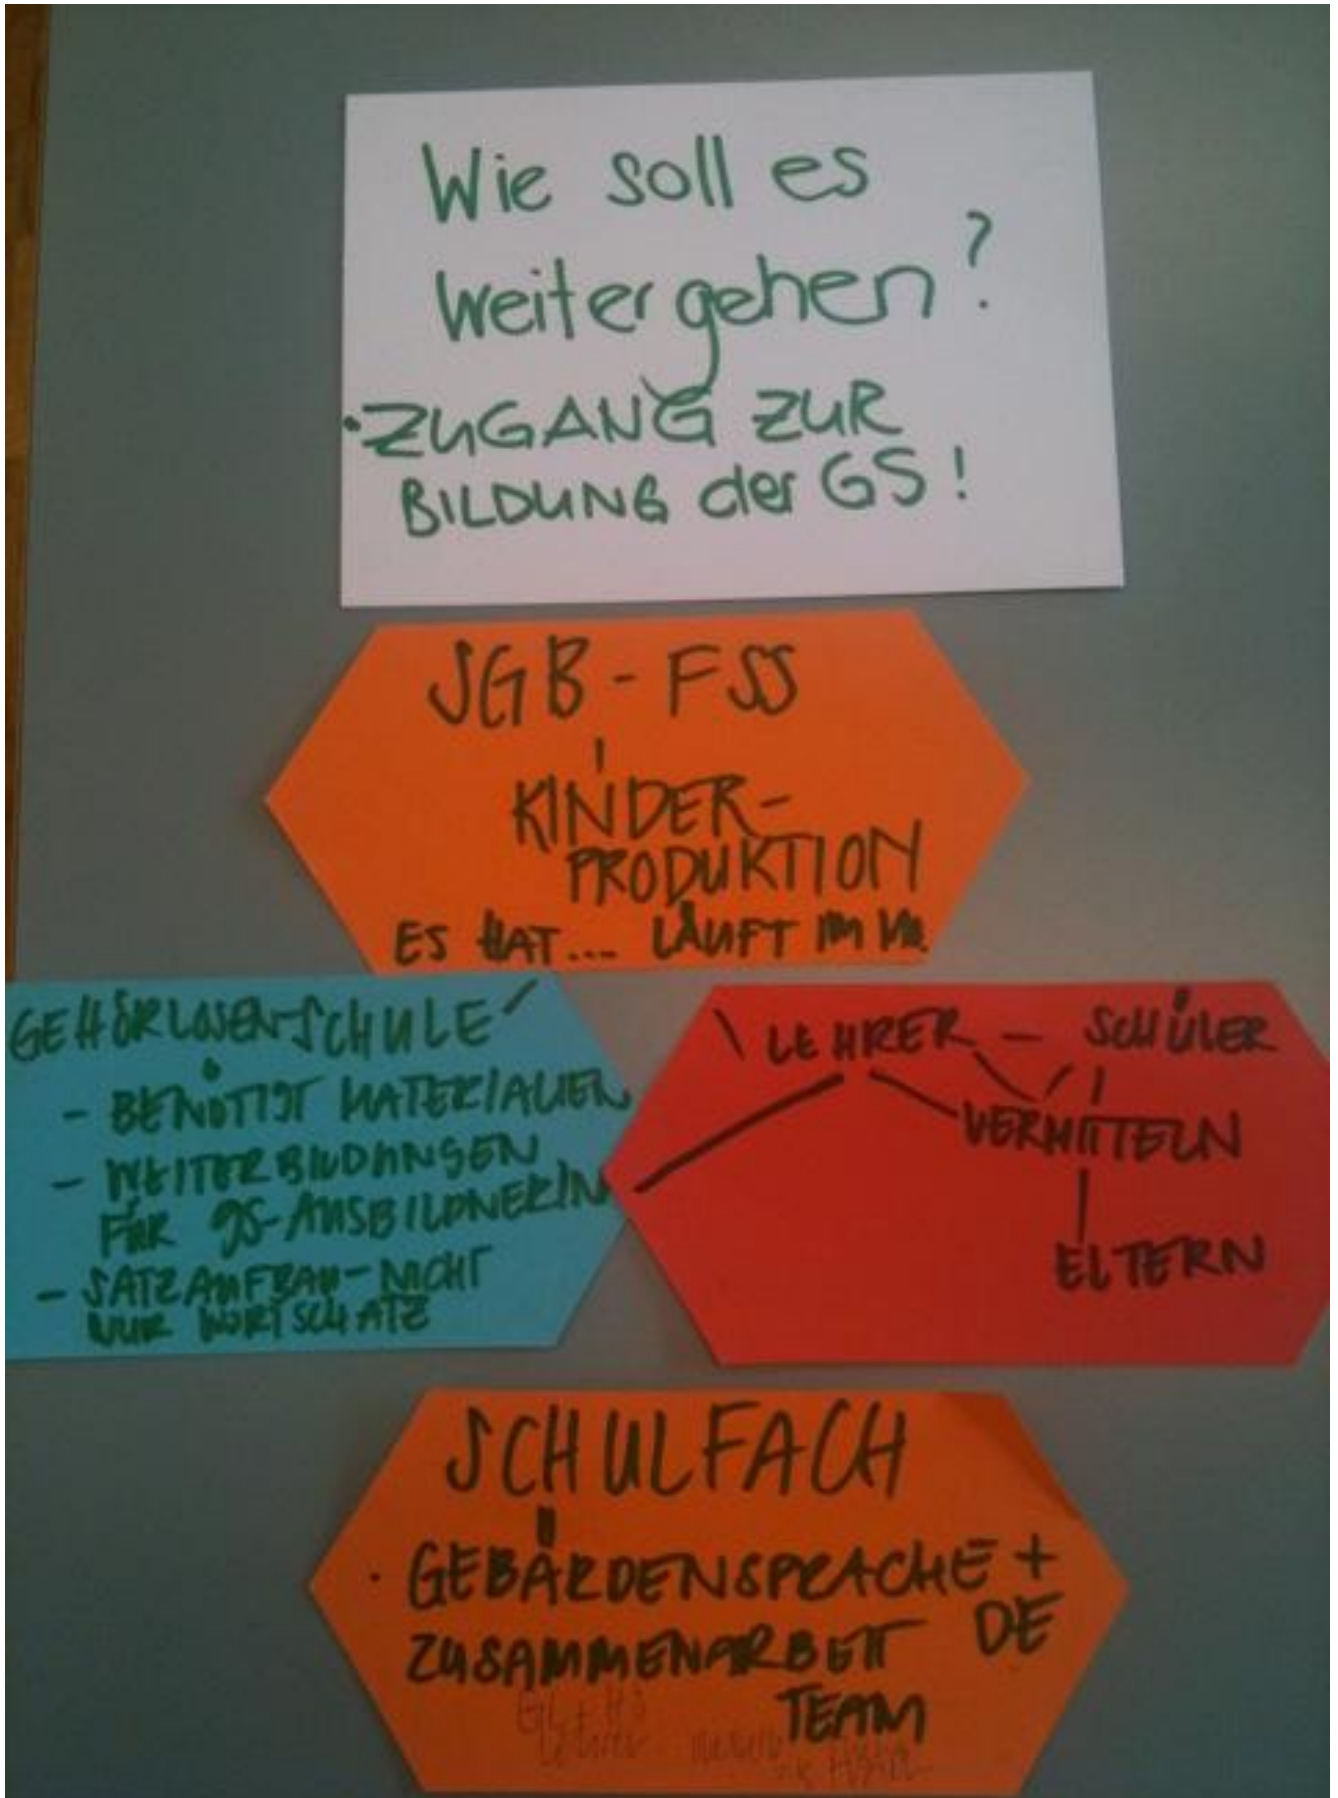 Wie soll es
weitergehen?
• ZUGANG ZUR
BILDUNG der GS!
SGB - FSS
KINDER-
PRODUKTION
ES HAT... LÄUFT IM
GEHÖRLOSENSCHULE
- BENÖTIGT MATERIALIEN
- WEITERBILDUNGEN
FÜR GS-AUSBILDNERIN
- SATZAUFBAU - NICHT
NUR WORTSCHATZ
LEHRER - SCHÜLER
VERMITTELN
ELTERN
SCHULFACH
• GEBÄRDENSPRACHE +
DE
ZUSAMMENARBEIT
TEAM